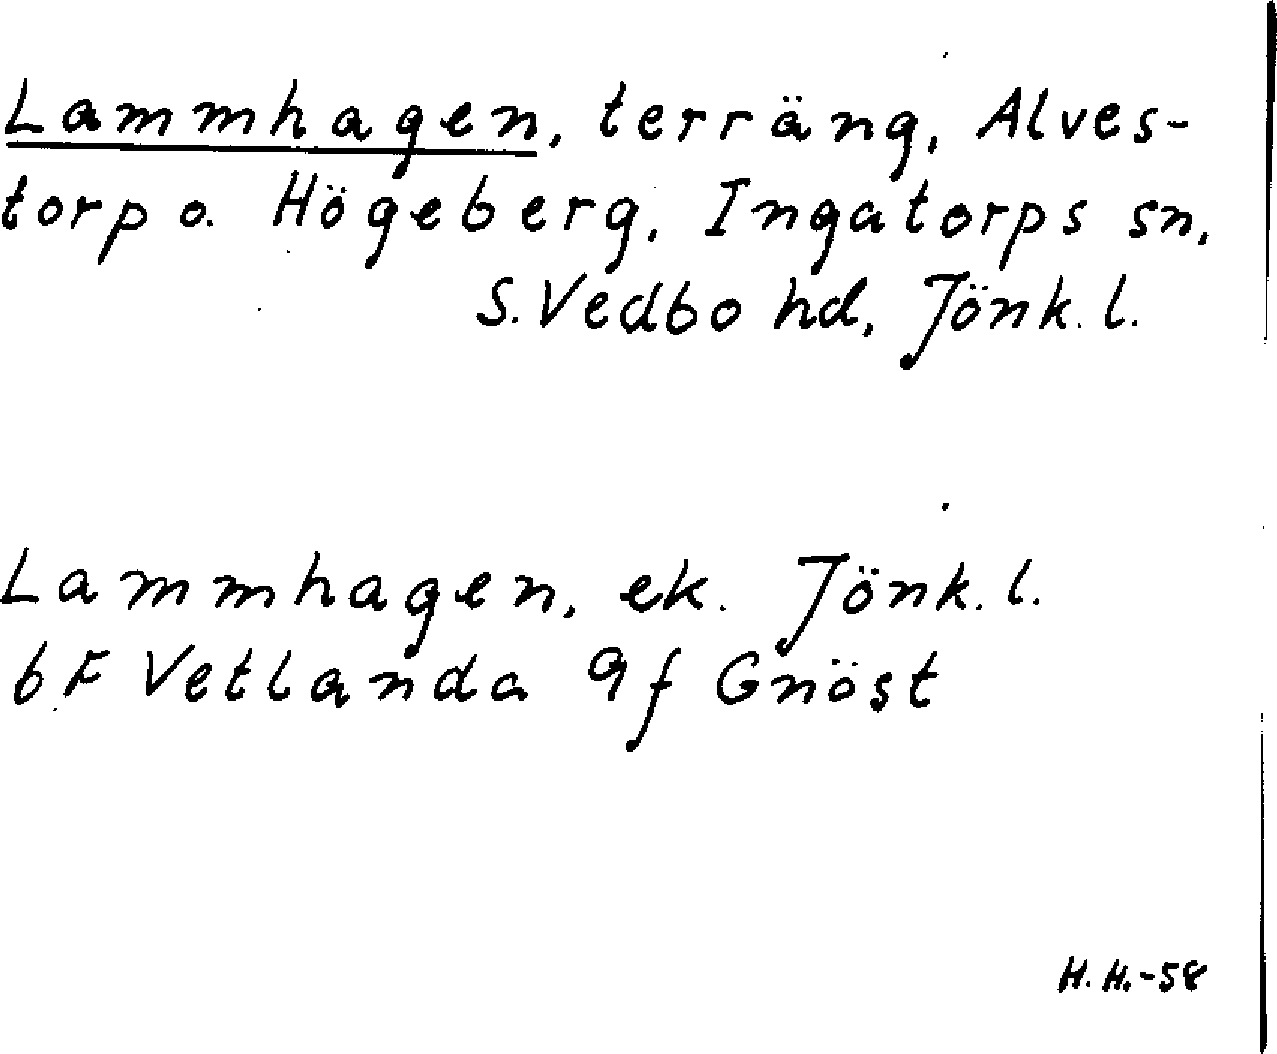 Lammhagen, terräng, Alves-
torp o. Högeberg, Ingatorps sn,
S. Vedbo hd, Jönk. l.
Lammhagen, ek. Jönk. l.
6F Vetlanda 9f Gnöst
H.H.-58